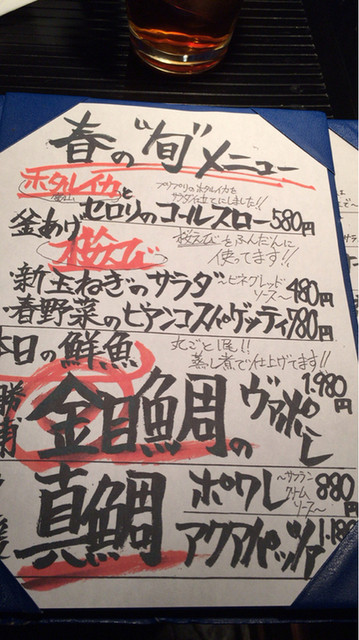 春の"旬"メニュー
ホタルイカと
プリプリのホタルイカを
サラダ仕立てにしました!!
セロリのコールスロー 580円
釜あげ桜えび
桜えびをふんだんに
使ってます!!
・新玉ねぎのサラダ ～ビネグレットソース～ 480円
・春野菜のビアンコスパゲッティ 780円
本日の鮮魚
丸ごと1尾!!
蒸し煮で仕上げてます!!
勝浦 金目鯛のヴァポーレ 1,980円
真鯛
ポワレ ～サフランクリームソース～ 880円
アクアパッツァ